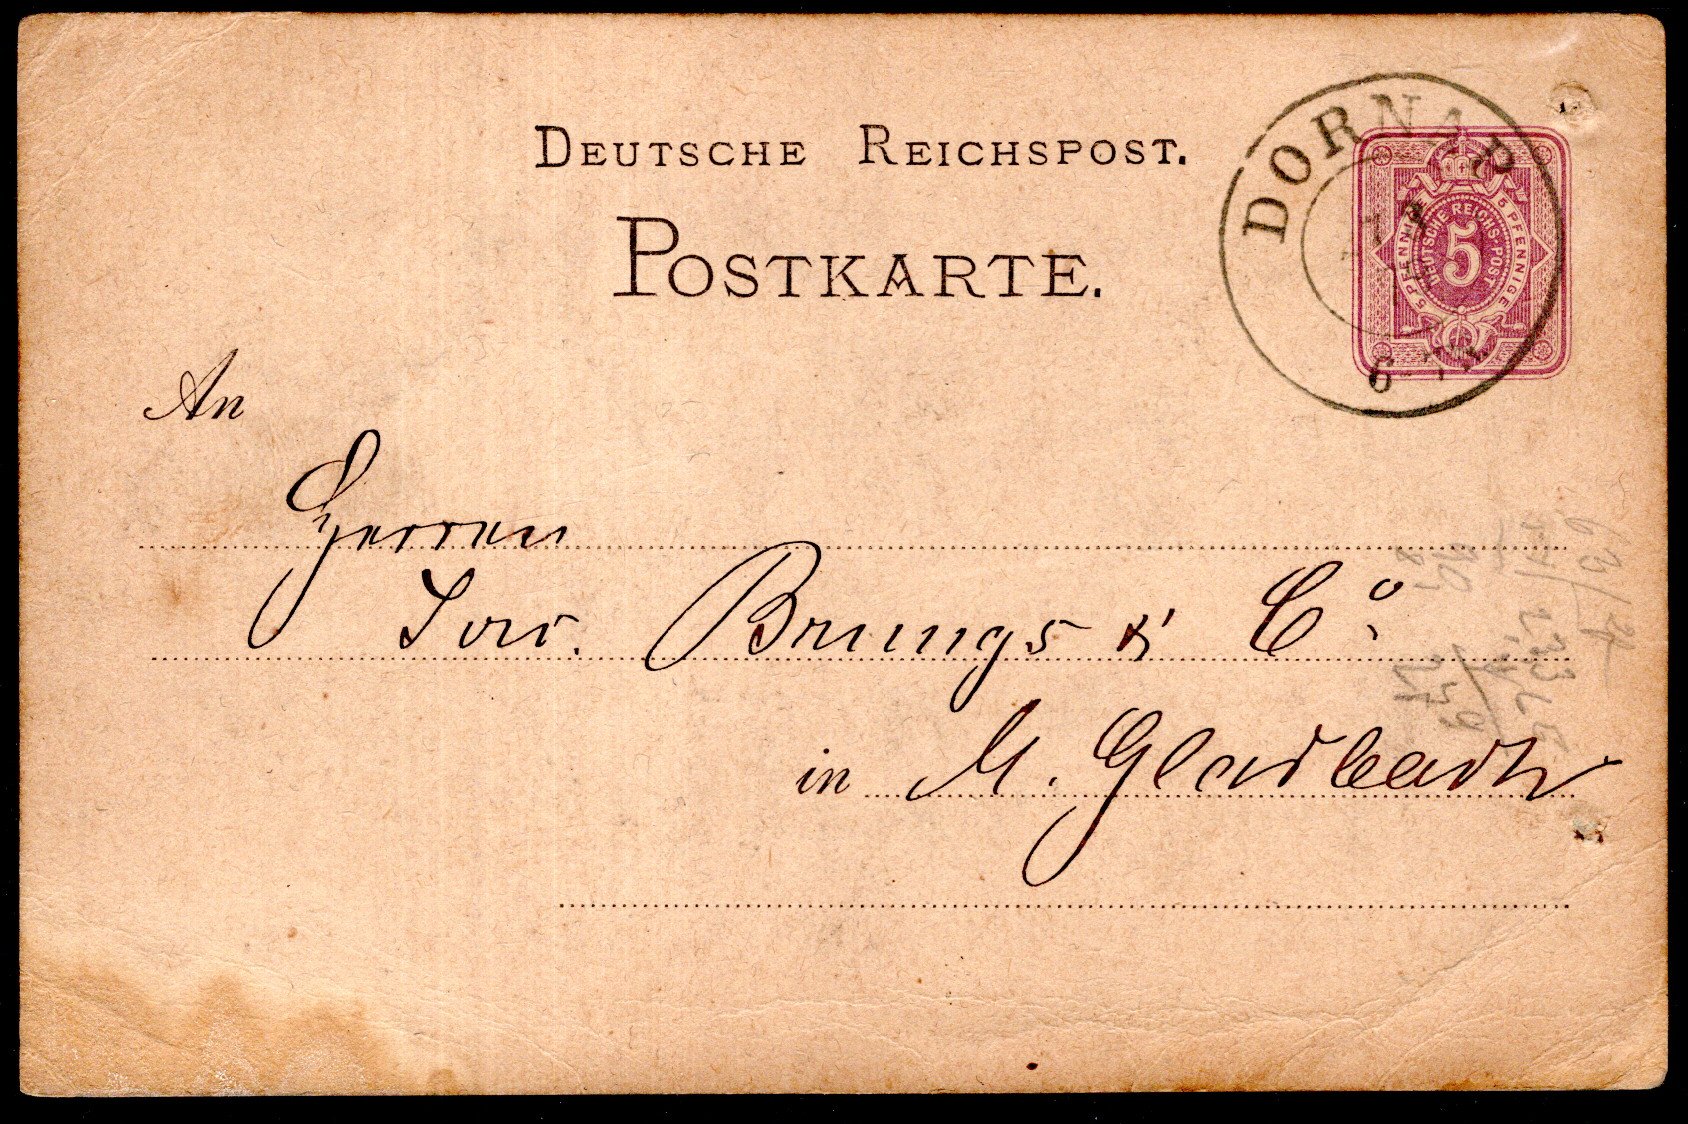 DEUTSCHE REICHSPOST.
POSTKARTE.
DORNAP
5 PFENNIGE 5 PFENNIGE
DEUTSCHE REICHS-POST
5
6-7N
An
Herren
Jos. Brungs & Co.
in M. Gladbach